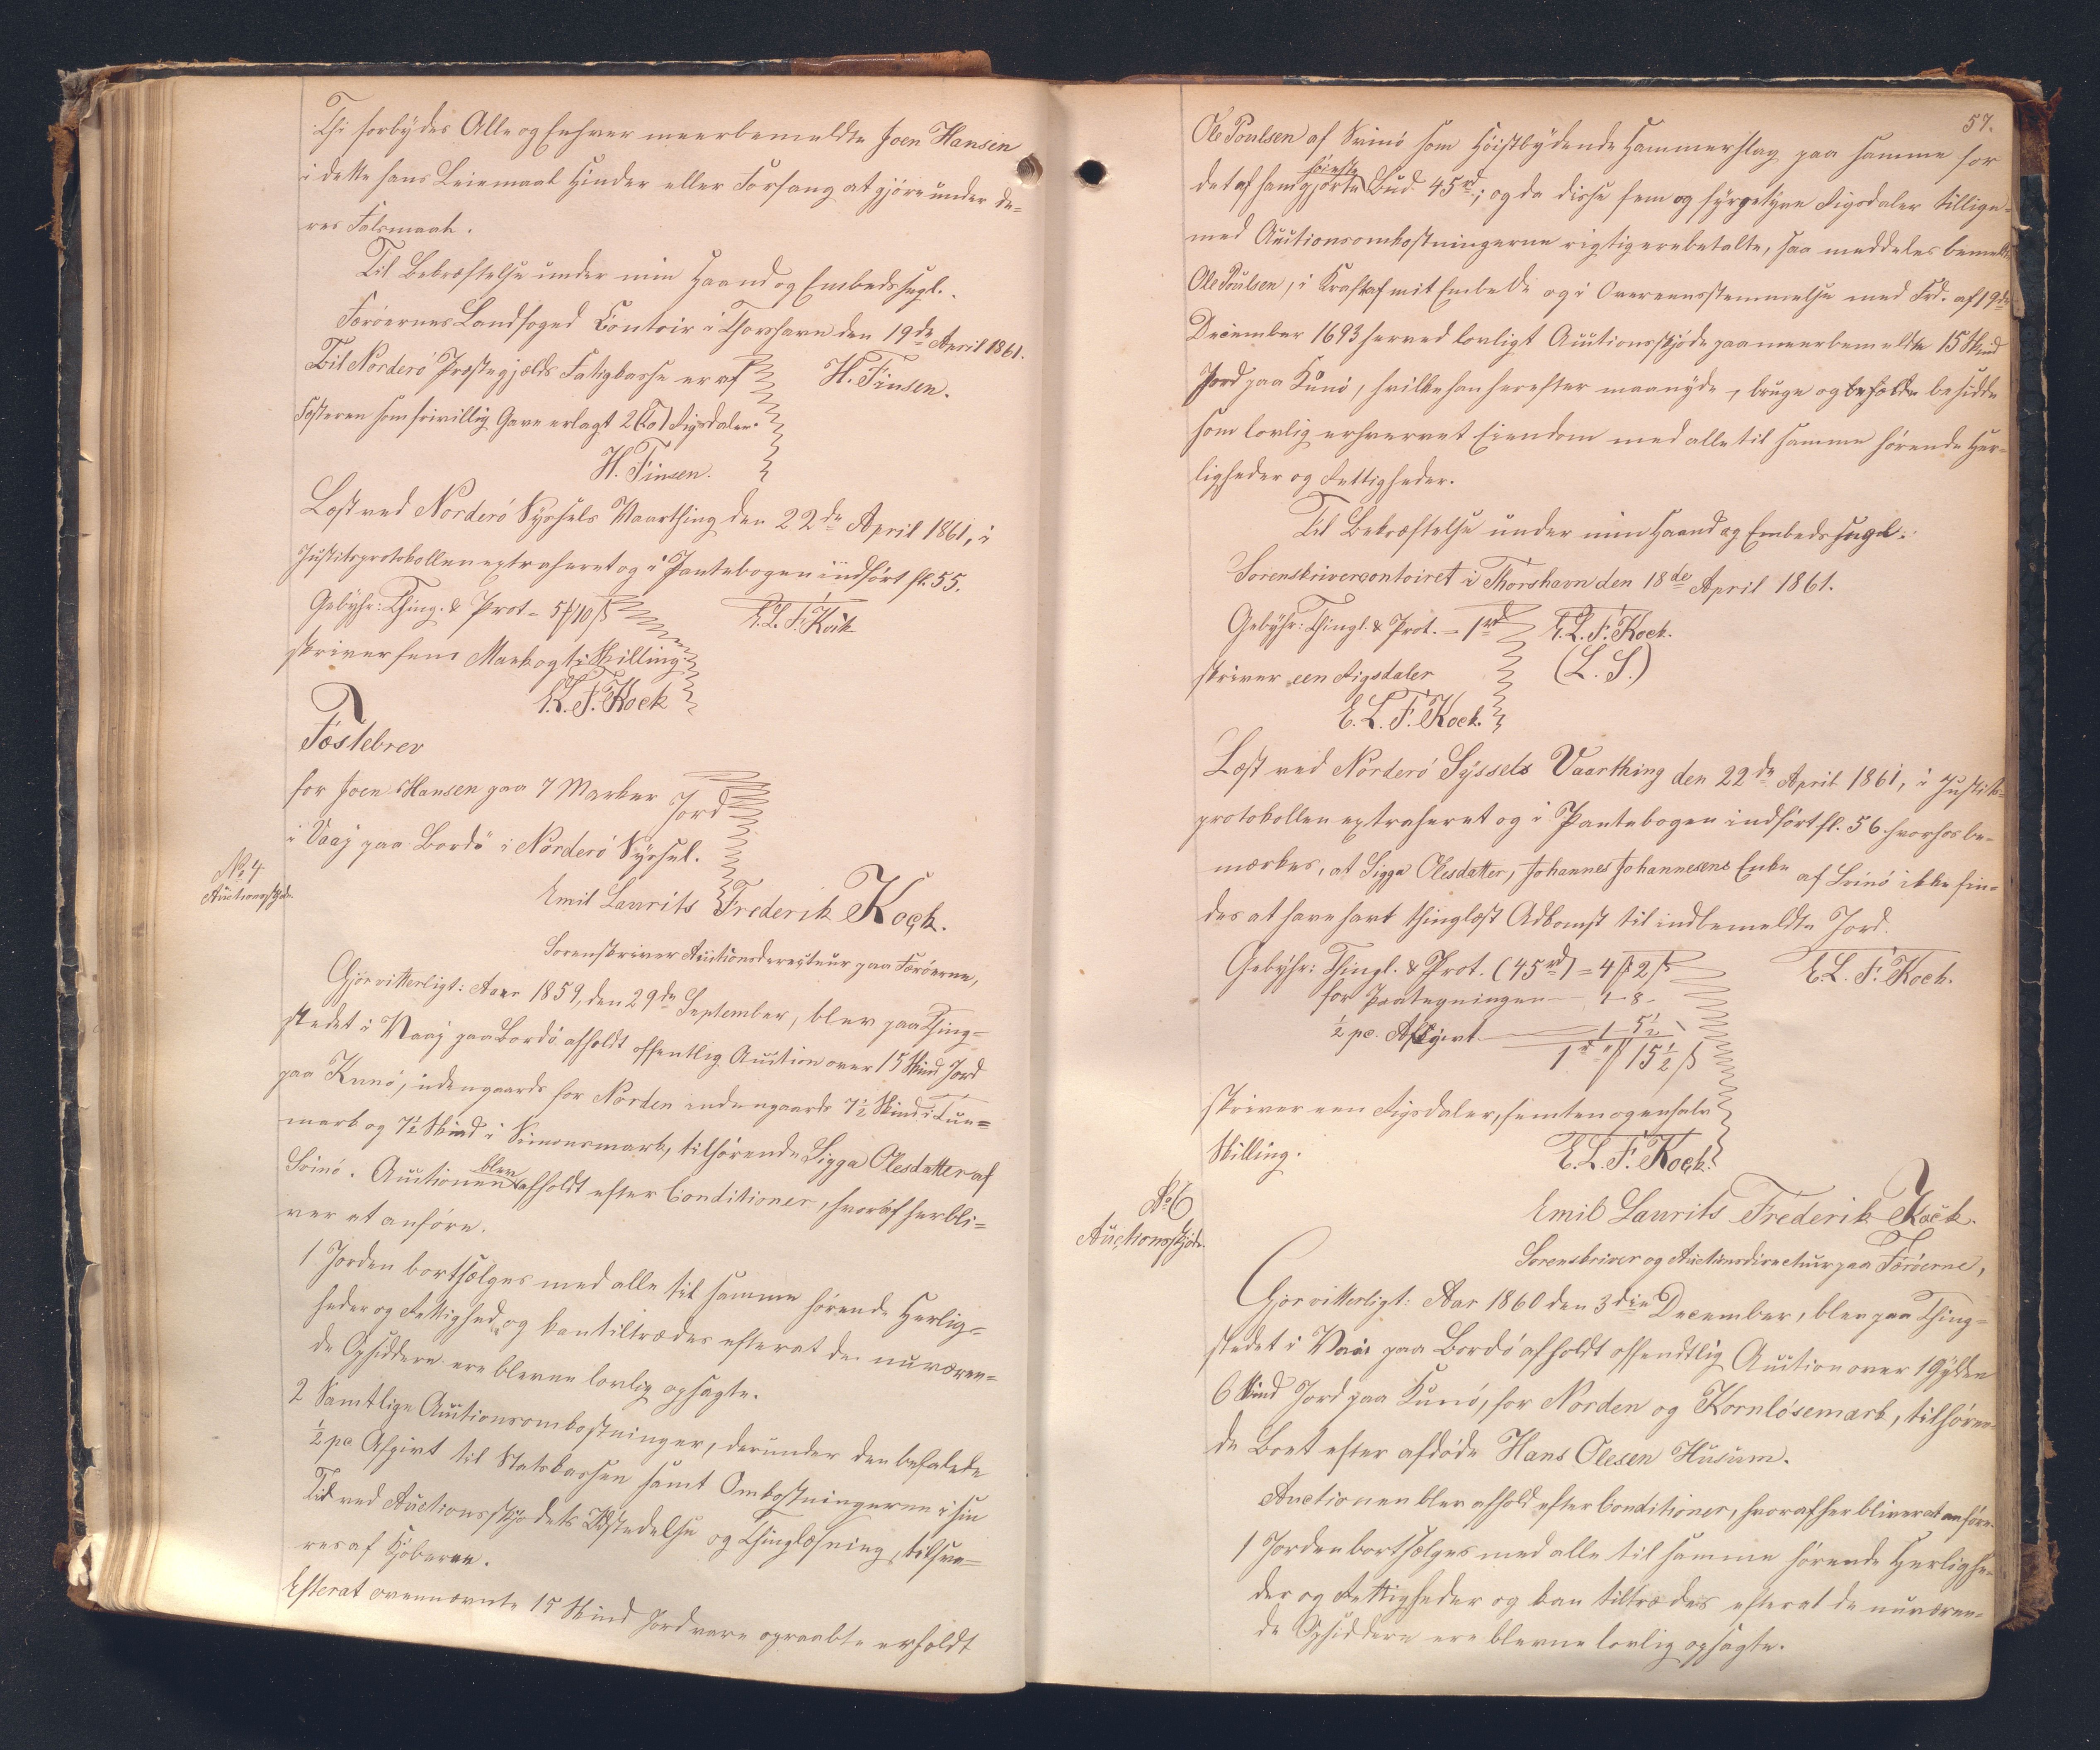 Thi forbydes Alle og Enhver meerbemeldte Joen Hansen
i dette hans Leiemaal Hinder eller Forfang at gjøre under de=
res Falsmaal.
Til Bekræftelse under min Haand og Embedssegl.
Færøernes Landfoged Contoir i Thorshavn den 19de April 1861.
H. Finsen.
Til Norderø Præstegjælds Fattigkasse er af
Fæsteren som frivillig Gave erlagt 2 (to) Rigsdaler.
H. Finsen.
Læst ved Norderø Syssels Vaarthing den 22de April 1861, i
Justitsprotokollen extraheret og i Pantebogen indført fl. 55.
E. L. F. Kock
Gebyhr: Thing. & Prot = 5 ℳ 10 ß
skriver fem Mark og ti Skilling.
E. L. F. Kock
Fæstebrev
for Joen Hansen paa 7 Marker Jord
i Vaaj paa Bordø i Norderø Syssel.
No 4
Auctionsskjøde
Emil Laurits Frederik Kock.
Sorenskriver Auctionsdirecteur paa Færøerne,
Gjør vitterligt: Aar 1859, den 29de September, blev paa Thing=
stedet i Vaaj paa Bordø afholdt offentlig Auction over 15 Skind Jord
paa Kunø, indengaards for Norden indengaards 7½ Skind i Tun=
mark og 7½ Skind i Simonsmark, tilhørende Sigga Olesdatter af
Svinø. Auctionen blev afholdt efter Conditioner, hvoraf her bli=
ver at anføre.
1 Jorden bortsælges med alle til samme hørende Herlig=
heder og Rettighed, og kan tiltrædes efterat de nuværen=
de Opsiddere ere blevne lovlig opsagte.
2 Samtlige Auctionsomkostninger, derunder den befalede
½ pc Afgivt til Statskassen samt Omkostningerne i sin
Tid ved Auctionsskjødets Udstedelse og Thinglæsning, tilsva=
res af Kjøberen.
Efterat ovennævnte 15 Skind Jord vare opraabte erholdt
57.
Ole Poulsen af Svinø som Høistbydende Hammerslag paa samme for
det af ham gjorte høieste Bud 45 rd; og da disse fem og fyrgetyve Rigsdaler tillige=
med Auctionsomkostningerne rigtig ere betalte, saa meddeles bemeldte
Ole Poulsen, i Kraft af mit Embede og i Overeensstemmelse med Frd. af 19de
December 1693 herved lovligt Auctionsskjøde paa meerbemeldte 15 Skind
Jord paa Kunø, hvilke han herefter maa nyde, bruge og beholde besidde
som lovlig erhvervet Eiendom med alle til samme hørende Her=
ligheder og Rettigheder.
Til Bekræftelse under min Haand og Embedssegl.
Sorenskrivercontoiret i Thorshavn den 18de April 1861.
Gebyhr: Thingl. & Prot. = 1 rd
E. L. F. Kock.
skriver een Rigsdaler
(L. S.)
E. L. F. Kock.
Læst ved Norderø Syssels Vaarthing den 22de April 1861, i Justits=
protokollen extraheret og i Pantebogen indført fl. 56 hvorhos be=
mærkes, at Sigga Olesdatter, Johannes Johannesens Enke af Svinø ikke fin=
des at have havt thinglæst Adkomst til indbemeldte Jord.
Gebyhr: Thingl. & Prot. (45 rd) = 4 ℳ 2 ß
E. L. F. Kock.
for Paategningen — 1 - 8 -
½ pc. Afgivt — 1 5½
1 rd " ℳ 15½ ß
skriver een Rigsdaler, femten og en halv
Skilling.
E. L. F. Kock.
No 6
Auctionsskjøde
Emil Laurits Frederik Kock.
Sorenskriver og Auctionsdirecteur paa Færøerne,
Gjør vitterligt: Aar 1860 den 3die December, blev paa Thing=
stedet i Vaai paa Bordø afholdt offendtlig Auction over 1 Gylden
6 Skind Jord paa Kunø, for Norden og Kornløsemark, tilhøren=
de Boet efter afdøde Hans Olesen Husum.
Auctionen blev afhold efter Conditioner, hvoraf her bliver at anføre.
1 Jorden bortsælges med alle til samme hørende Herlighe=
der og Rettigheder og kan tiltrædes efterat de nuværen=
de Opsiddere ere blevne lovlig opsagte.